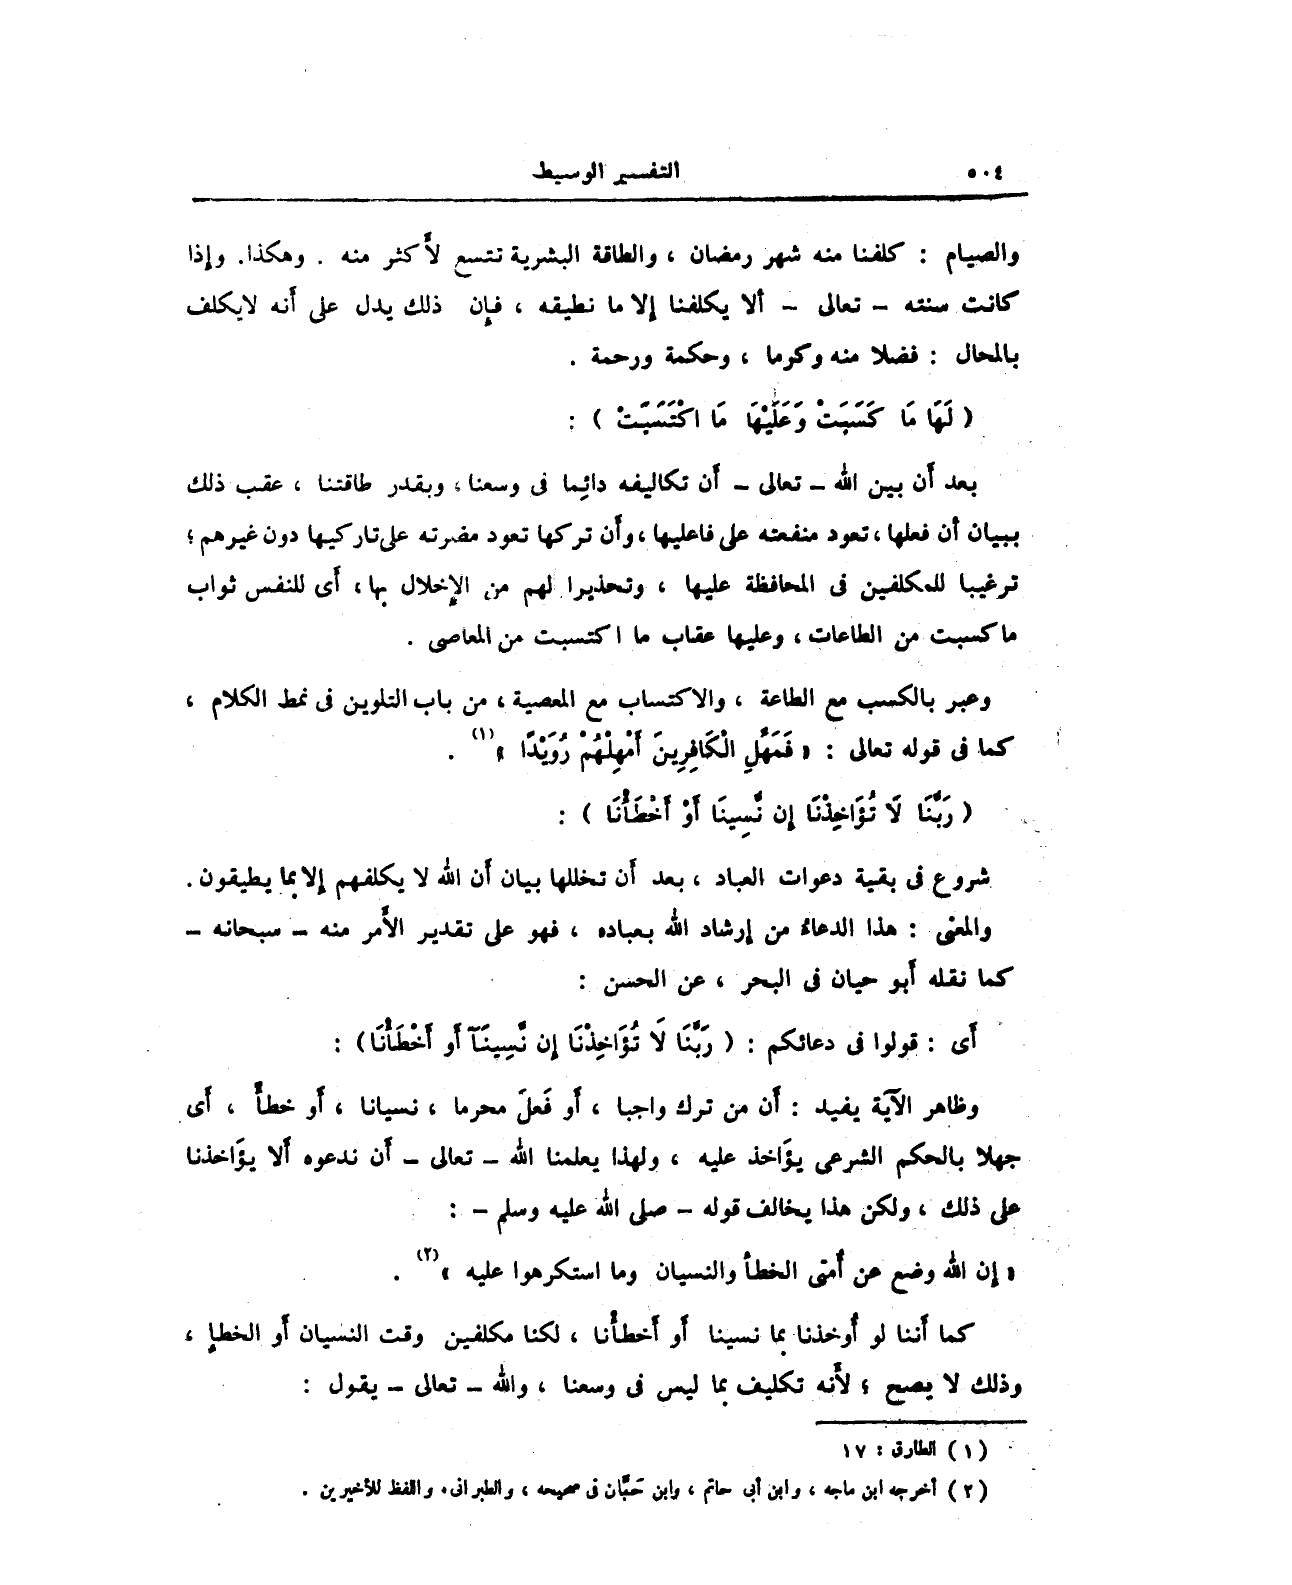 ٥٠٤ التفسير الوسيط
والصيام : كلفنا منه شهر رمضان ، والطاقة البشرية تتسع لأكثر منه . وهكذا. وإذا
كانت سنته – تعالى – ألا يكلفنا إلا ما نطيقه ، فإن ذلك يدل على أنه لايكلف
بالمحال : فضلا منه وكرما ، وحكمة ورحمة .
( لَهَا مَا كَسَبَتْ وَعَلَيْهَا مَا اكْتَسَبَتْ ) :
بعد أن بين الله – تعالى – أن تكاليفه دائما فى وسعنا ، وبقدر طاقتنا ، عقب ذلك
ببيان أن فعلها ، تعود منفعته على فاعليها ، وأن تركها تعود مضرته على تاركيها دون غيرهم ؛
ترغيبا للمكلفين فى المحافظة عليها ، وتحذيرا لهم من الإخلال بها ، أى للنفس ثواب
ما كسبت من الطاعات ، وعليها عقاب ما اكتسبت من المعاصى .
وعبر بالكسب مع الطاعة ، والاكتساب مع المعصية ، من باب التلوين فى نمط الكلام ،
كما فى قوله تعالى : « فَمَهِّلِ الْكَافِرِينَ أَمْهِلْهُمْ رُوَيْدًا »(١) .
( رَبَّنَا لَا تُؤَاخِذْنَا إِن نَّسِينَا أَوْ أَخْطَأْنَا ) :
شروع فى بقية دعوات العباد ، بعد أن تخللها بيان أن الله لا يكلفهم إلا بما يطيقون .
والمعنى : هذا الدعاء من إرشاد الله بعباده ، فهو على تقدير الأمر منه – سبحانه –
كما نقله أبو حيان فى البحر ، عن الحسن :
أى : قولوا فى دعائكم : ( رَبَّنَا لَا تُؤَاخِذْنَا إِن نَّسِينَآ أَو أَخْطَأْنَا ) :
وظاهر الآية يفيد : أن من ترك واجبا ، أو فَعلَ محرما ، نسيانا ، أو خطأ ، أى
جهلا بالحكم الشرعى يؤاخذ عليه ، ولهذا يعلمنا الله – تعالى – أن ندعوه ألا يؤاخذنا
على ذلك ، ولكن هذا يخالف قوله – صلى الله عليه وسلم – :
« إن الله وضع عن أمتى الخطأ والنسيان وما استكرهوا عليه »(٢) .
كما أننا لو أوخذنا بما نسينا أو أخطأنا ، لكنا مكلفين وقت النسيان أو الخطإ ،
وذلك لا يصح ؛ لأنه تكليف بما ليس فى وسعنا ، والله – تعالى – يقول :
( ١ ) الطارق : ١٧
( ٢ ) أخرجه ابن ماجه ، وابن أبى حاتم ، وابن حَبَّان فى صحيحه ، والطبرانى، واللفظ للأخيرين .